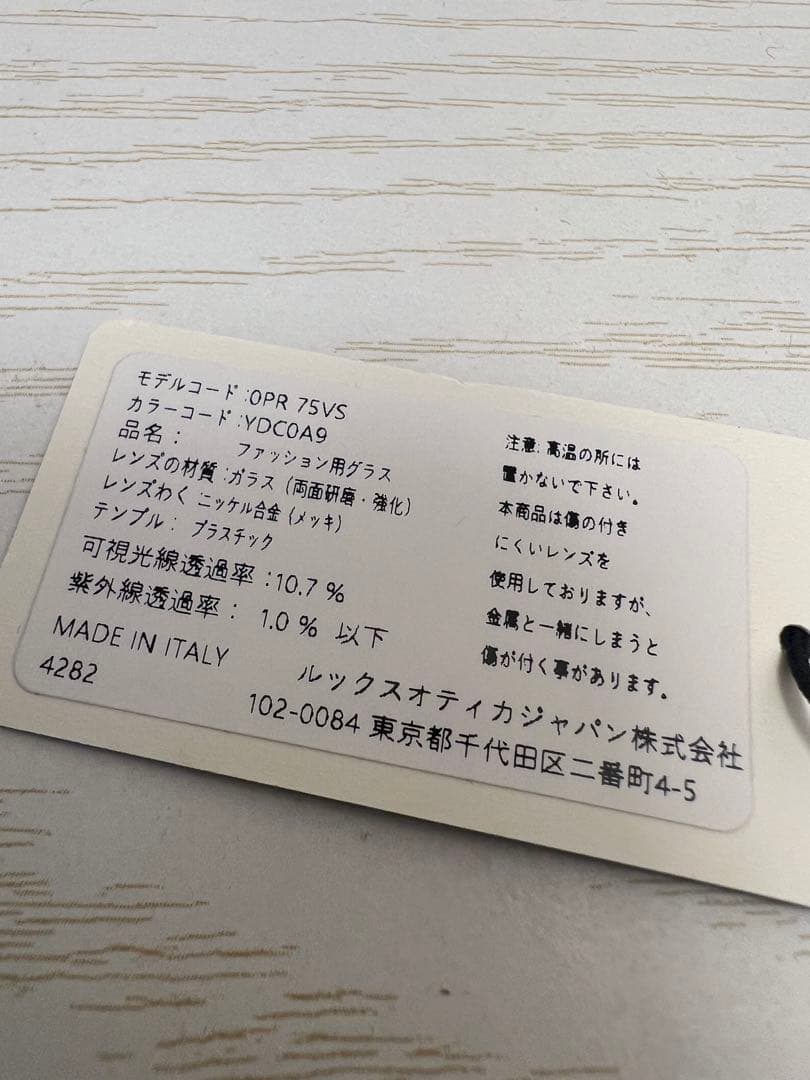 モデルコード:0PR 75VS
カラーコード:YDC0A9
品名: ファッション用グラス
レンズの材質:ガラス (両面研磨・強化)
レンズわく ニッケル合金 (メッキ)
テンプル: プラスチック
可視光線透過率:10.7 %
紫外線透過率: 1.0 % 以下
MADE IN ITALY
4282
注意: 高温の所には
置かないで下さい。
本商品は傷の付き
にくいレンズを
使用しておりますが、
金属と一緒にしまうと
傷が付く事があります。
ルックスオティカジャパン株式会社
102-0084 東京都千代田区二番町4-5